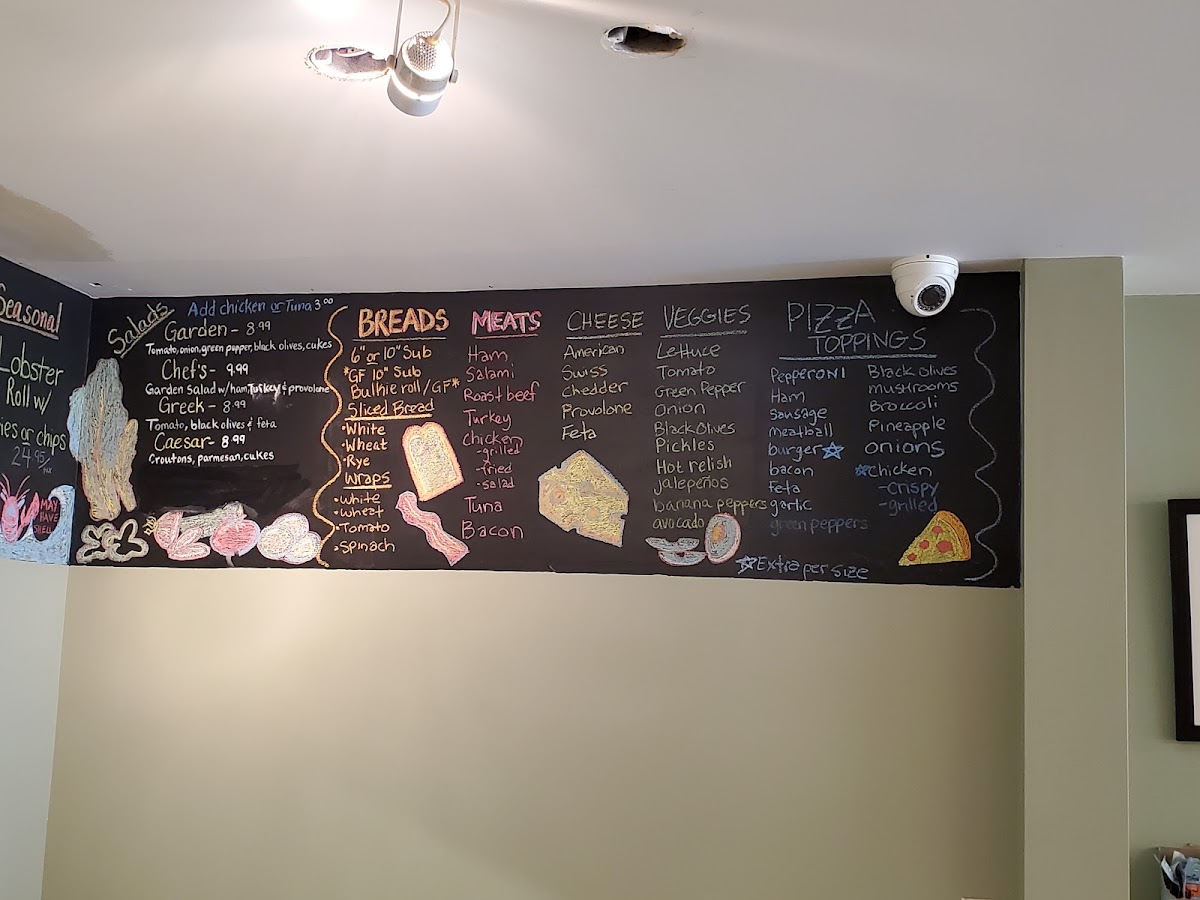 Seasonal
Lobster
Roll w/
ies or chips
24.95
MAY
HAVE
SHELL
Salads
Add chicken or Tuna 3.00
Garden - 8.99
Tomato, onion, green pepper, black olives, cukes
Chef's - 9.99
Garden Salad w/ ham, Turkey & provolone
Greek - 8.99
Tomato, black olives & feta
Caesar - 8.99
Croutons, parmesan, cukes
BREADS
6" or 10" Sub
*GF 10" Sub
Bulkie roll/GF*
Sliced Bread
• White
• Wheat
• Rye
Wraps
• White
• Wheat
• Tomato
• Spinach
MEATS
Ham
Salami
Roast beef
Turkey
Chicken
- grilled
- fried
- salad
Tuna
Bacon
CHEESE
American
Swiss
Chedder
Provolone
Feta
VEGGIES
Lettuce
Tomato
Green Pepper
Onion
Black Olives
Pickles
Hot relish
Jalepeños
banana peppers
avocado
PIZZA
TOPPINGS
Pepperoni
Ham
Sausage
meatball
burger ☆
bacon
Feta
garlic
green peppers
Black olives
mushrooms
Broccoli
Pineapple
onions
☆ chicken
- crispy
- grilled
☆ Extra per size